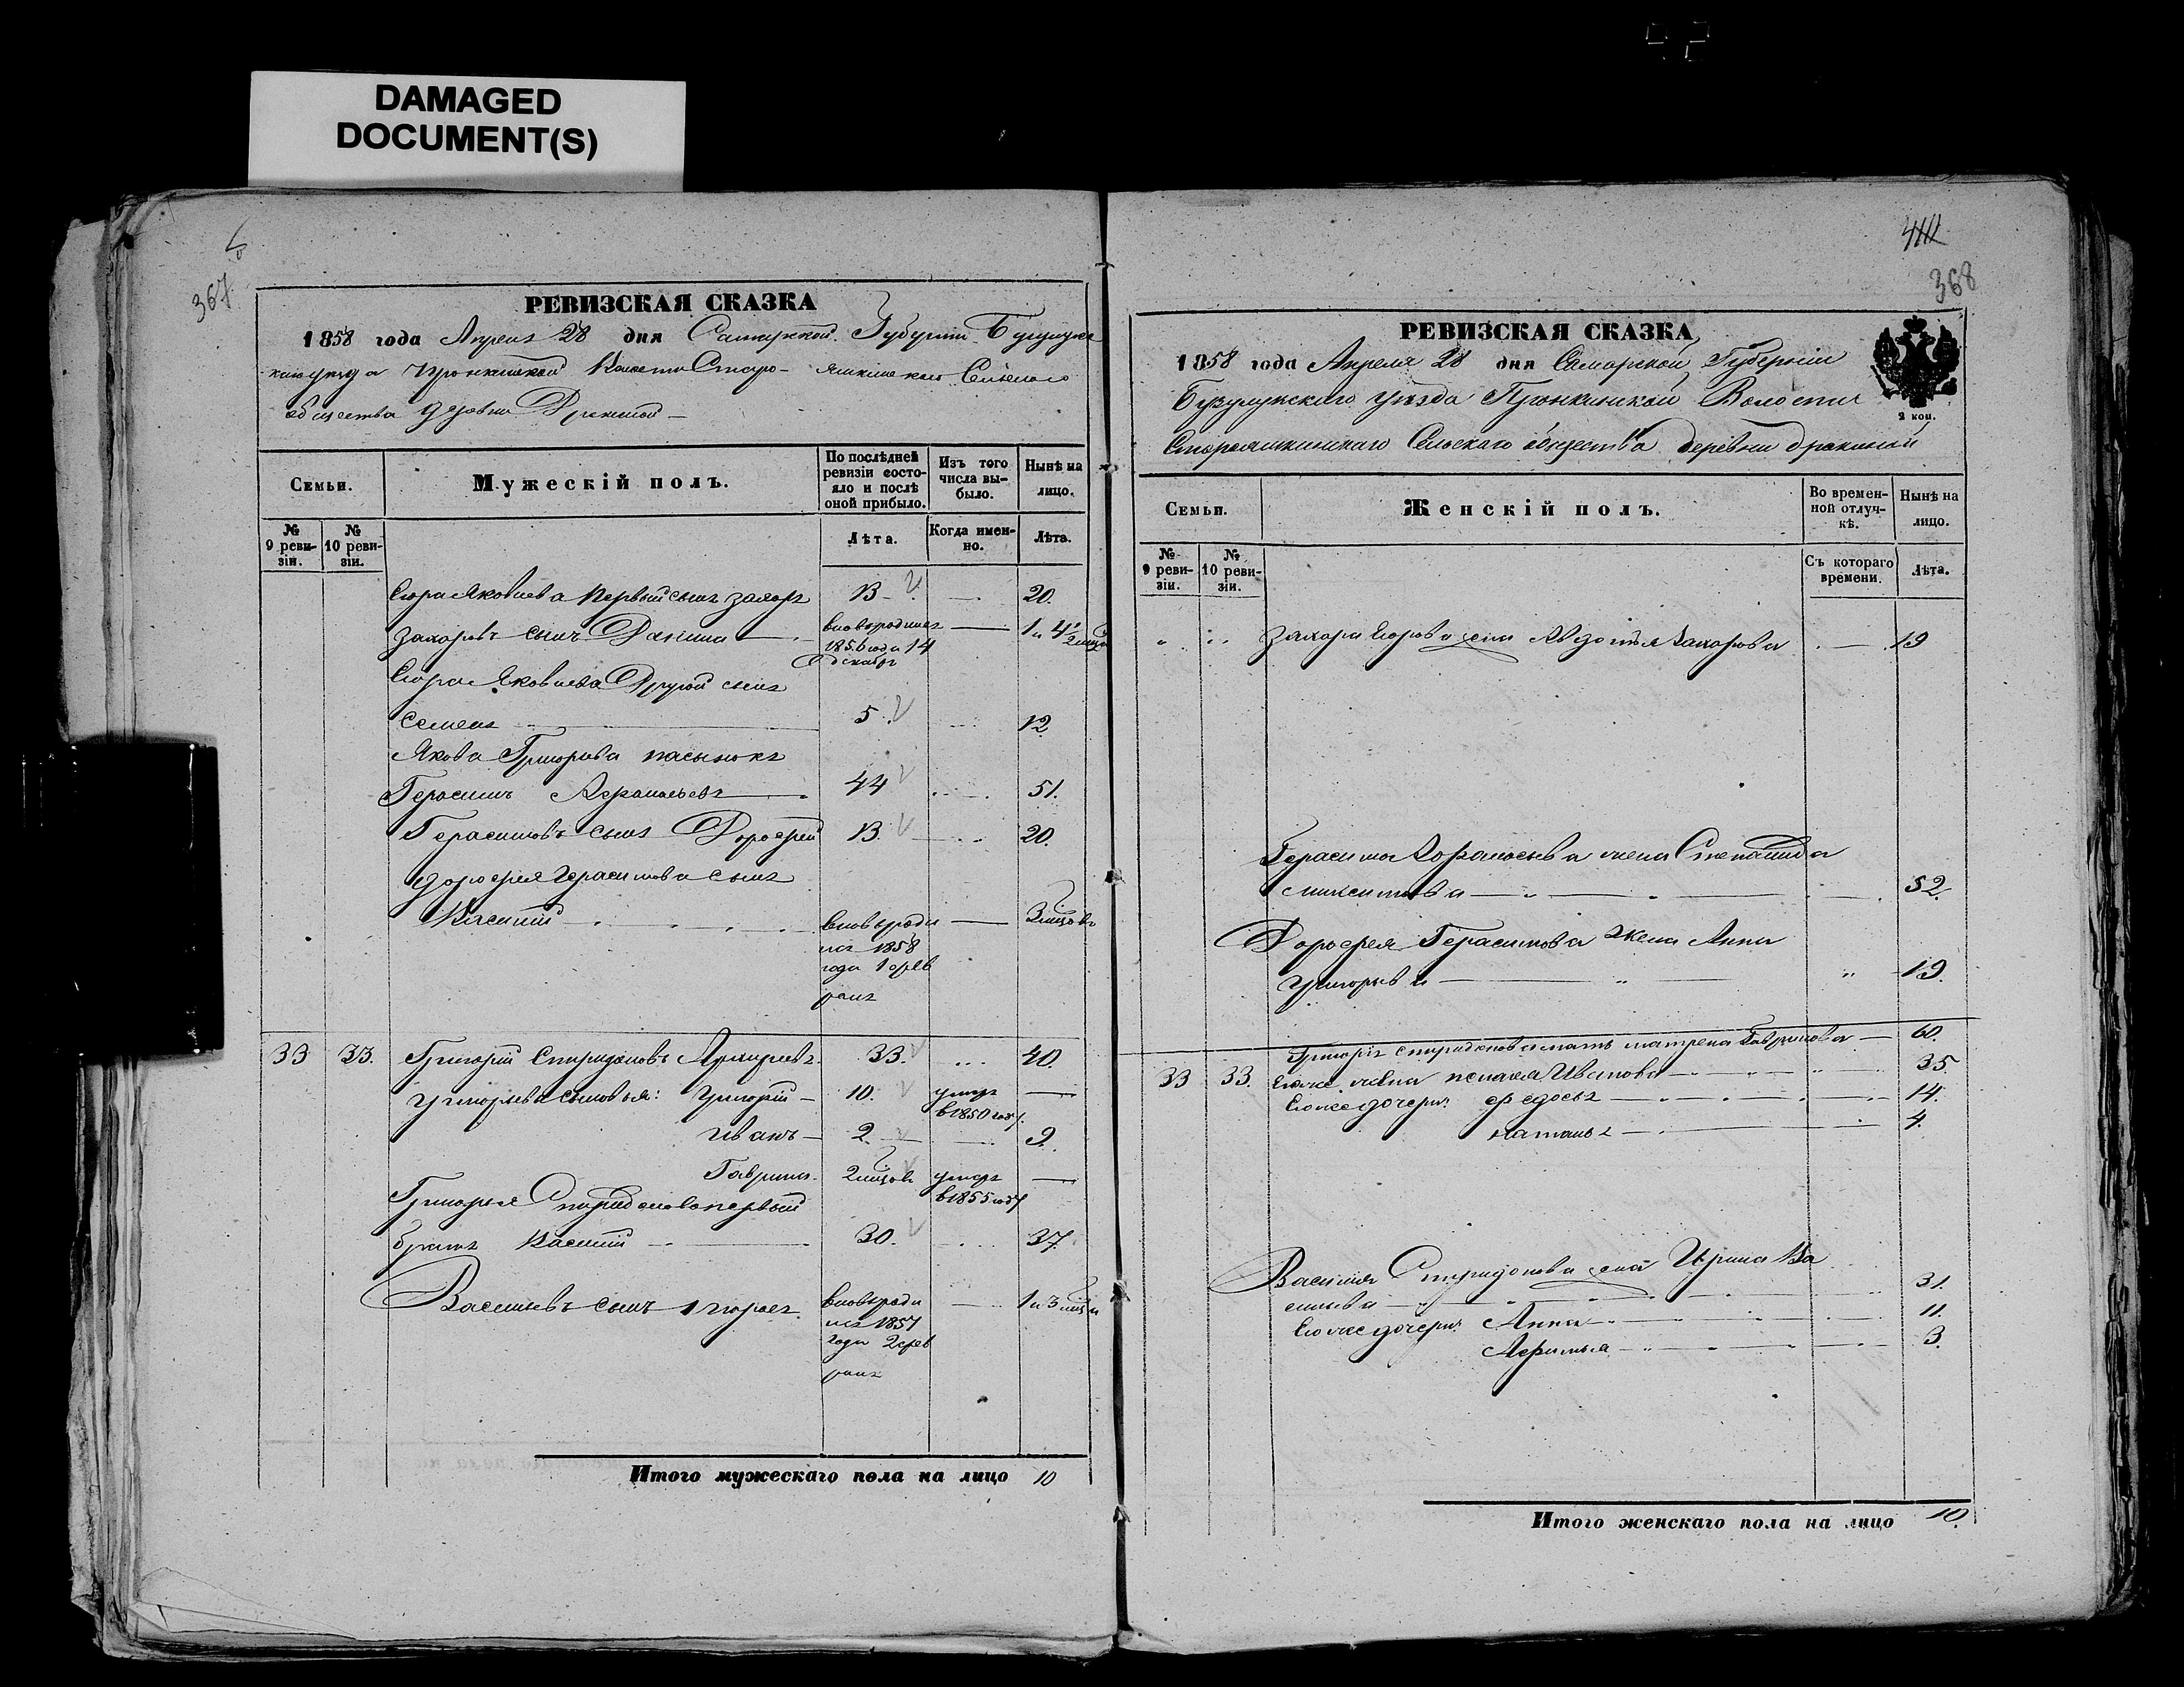 DAMAGED
DOCUMENT(S)
367
РЕВИЗСКАЯ СКАЗКА
1858 года Апреля 28 дня Самарской Губернии Бузулук
скаго уезда Пронкинской Волости Старо-яшкинскаго Сельскаго
общества деревни
Семьи.
Мужескій полъ.
По послѣдней ревизіи состояло и послѣ оной прибыло.
Изъ того числа выбыло.
Нынѣ на лицо.
№ 9 ревизіи.
№ 10 ревизіи.
Лѣта.
Когда именно.
Лѣта.
Егора Яковлева первый сынъ Захаръ 13 20.
Захаровъ сынъ Данила вновь родился 1 и 4 1/2 мца
1856 года 14
декабря
Егора Яковлева Другой сынъ
Семенъ 5 12
Якова Григорьева пасынокъ
Герасимъ Афонасьевъ 44 51.
Герасимовъ сынъ Дорофей 13. 20.
Дорофея Герасимова сынъ
Василий вновь роди 3 мцовъ
лся 1858
года 1 фев
раля
33 33. Григорий Спиридоновъ 33. 40.
Григорьева сыновья: Григорий 10. умеръ
в 1850 году.
Иванъ 2 9.
Гаврила 2 мцовъ умеръ
в 1855 году
Григорья Спиридонова первый
братъ Василий 30. 37.
Васильевъ сынъ Егоръ вновь роди 1 и 3 мца
лся 1857
года 2 фев
раля
Итого мужескаго пола на лицо 10
368
РЕВИЗСКАЯ СКАЗКА
1858 года Апреля 28 дня Самарской Губернии
Бузулукскаго уезда Пронкинской Волости
2 коп.
Старояшкинскаго Сельскаго общества деревни
Семьи.
Женскій полъ.
Во временной отлучкѣ.
Нынѣ на лицо.
№ 9 ревизіи.
№ 10 ревизіи.
Съ котораго времени.
Лѣта.
Захара Егорова жена Авдотья Захарова 19
Герасима Афонасьева жена Степанида
52.
Дорофея Герасимова жена Анна
Григорьева 19.
Григорья Спиридонова мать Матрена Гаврилова 60.
33 33. Его же жена Пелагея Иванова 35.
Его же дочери: Федосья 14.
Наталья 4.
Василия Спиридонова жена Ирина Ва
сильева 31.
Его же дочери: Анна 11.
Афимья 3.
Итого женскаго пола на лицо 10.